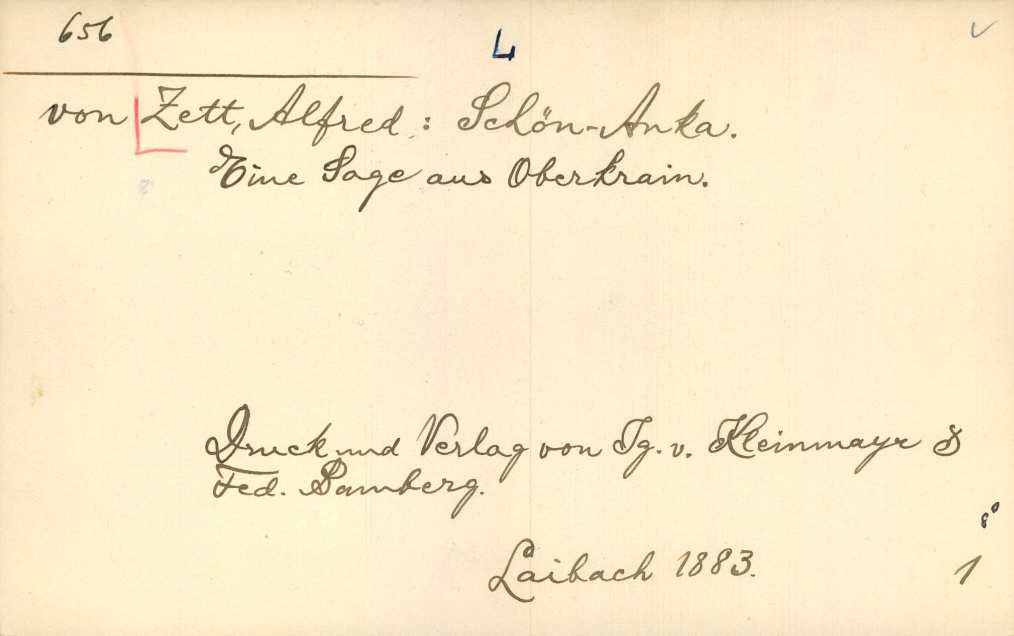 656
L
von Zett, Alfred : Schön-Anka.
Eine Sage aus Oberkrain.
Druck und Verlag von Ig. v. Kleinmayr &
Fed. Bamberg.
8°
Laibach 1883. 1